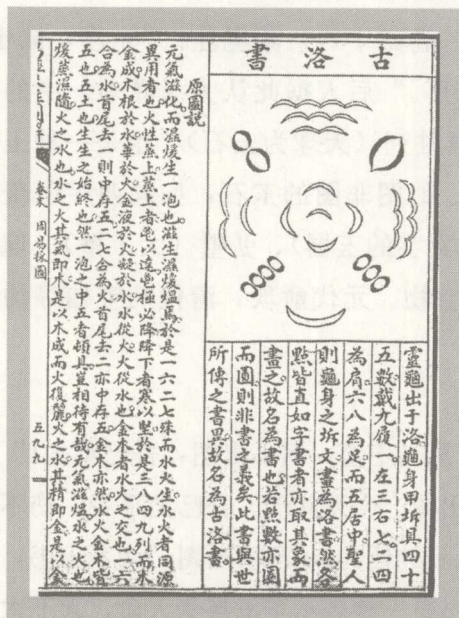 古洛書
靈龜出于洛龜身甲坼具四十
五數戴九履一左三右七二四
為肩六八為足而五居中聖人
則龜身之坼文畫為洛書然各
點皆直如字書者亦取其象而
畫之故名為書也若點數亦圓
而圓則非書之義矣此書與世
所傳之書異故名為古洛書
原圖說
元氣滋化而濕煖生一泡也滋生濕煖熅焉於是一六二七殊而水火生水火者同源
異用者也火性蒸上蒸上者以遠極必降降下者寒以堅於是三八四九列而木
金成木根於水華於火金液於火凝於水水從火火從水也金木者水火之交也一六
合為水首尾去一則中存五二七合為火首尾去二亦中存五金木亦然水火金木皆
五也五土也生生之始終也然一泡之中五者頓具豈相待有哉元氣滋熅水之火也
煖蒸濕隨火之水也水之火其氣即木是以木成而火復麗火之水其精即金是以金
卷末 周易採圖 五九九